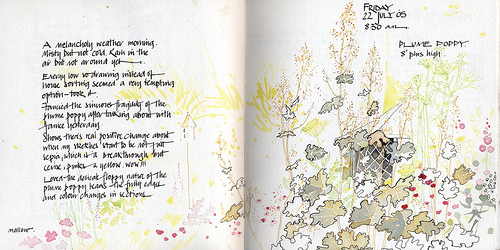 A melancholy weather morning.
Misty but not cold. Rain in the
air but not around yet.
Energy low so drawing instead of
home sorting seemed a very tempting
option - took it.
the sinuous fragility of the
plume poppy after talking about with
yesterday
Shows there's real positive change about
when my sketches start to be not all
sepia, which is a breakthrough but
pinks & yellow. wow!!!
Loved the delicate floppy nature of the
plume poppy leaves the fluffy edges
and colour changes in sections
mallow
FRIDAY
22 JULY 05
8:30 am
PLUME POPPY.
8' plus high.